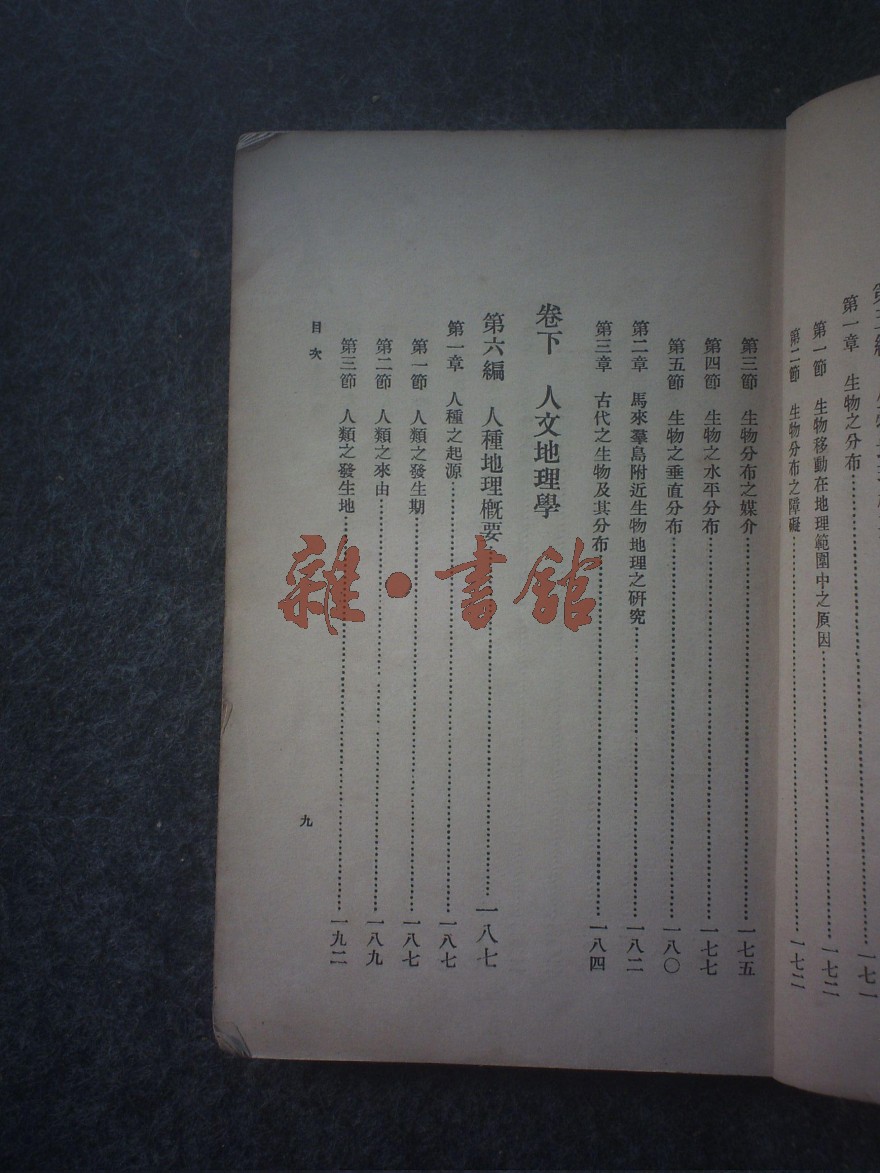 第一章　生物之分布……一七一
第一節　生物移動在地理範圍中之原因……一七二
第二節　生物分布之障礙……一七二
第三節　生物分布之媒介……一七五
第四節　生物之水平分布……一七七
第五節　生物之垂直分布……一八〇
第二章　馬來羣島附近生物地理之研究……一八二
第三章　古代之生物及其分布……一八四
卷下　人文地理學
第六編　人種地理概要……一八七
第一章　人種之起源……一八七
第一節　人類之發生期……一八七
第二節　人類之來由……一八九
第三節　人類之發生地……一九二
目次
九
雜·書館